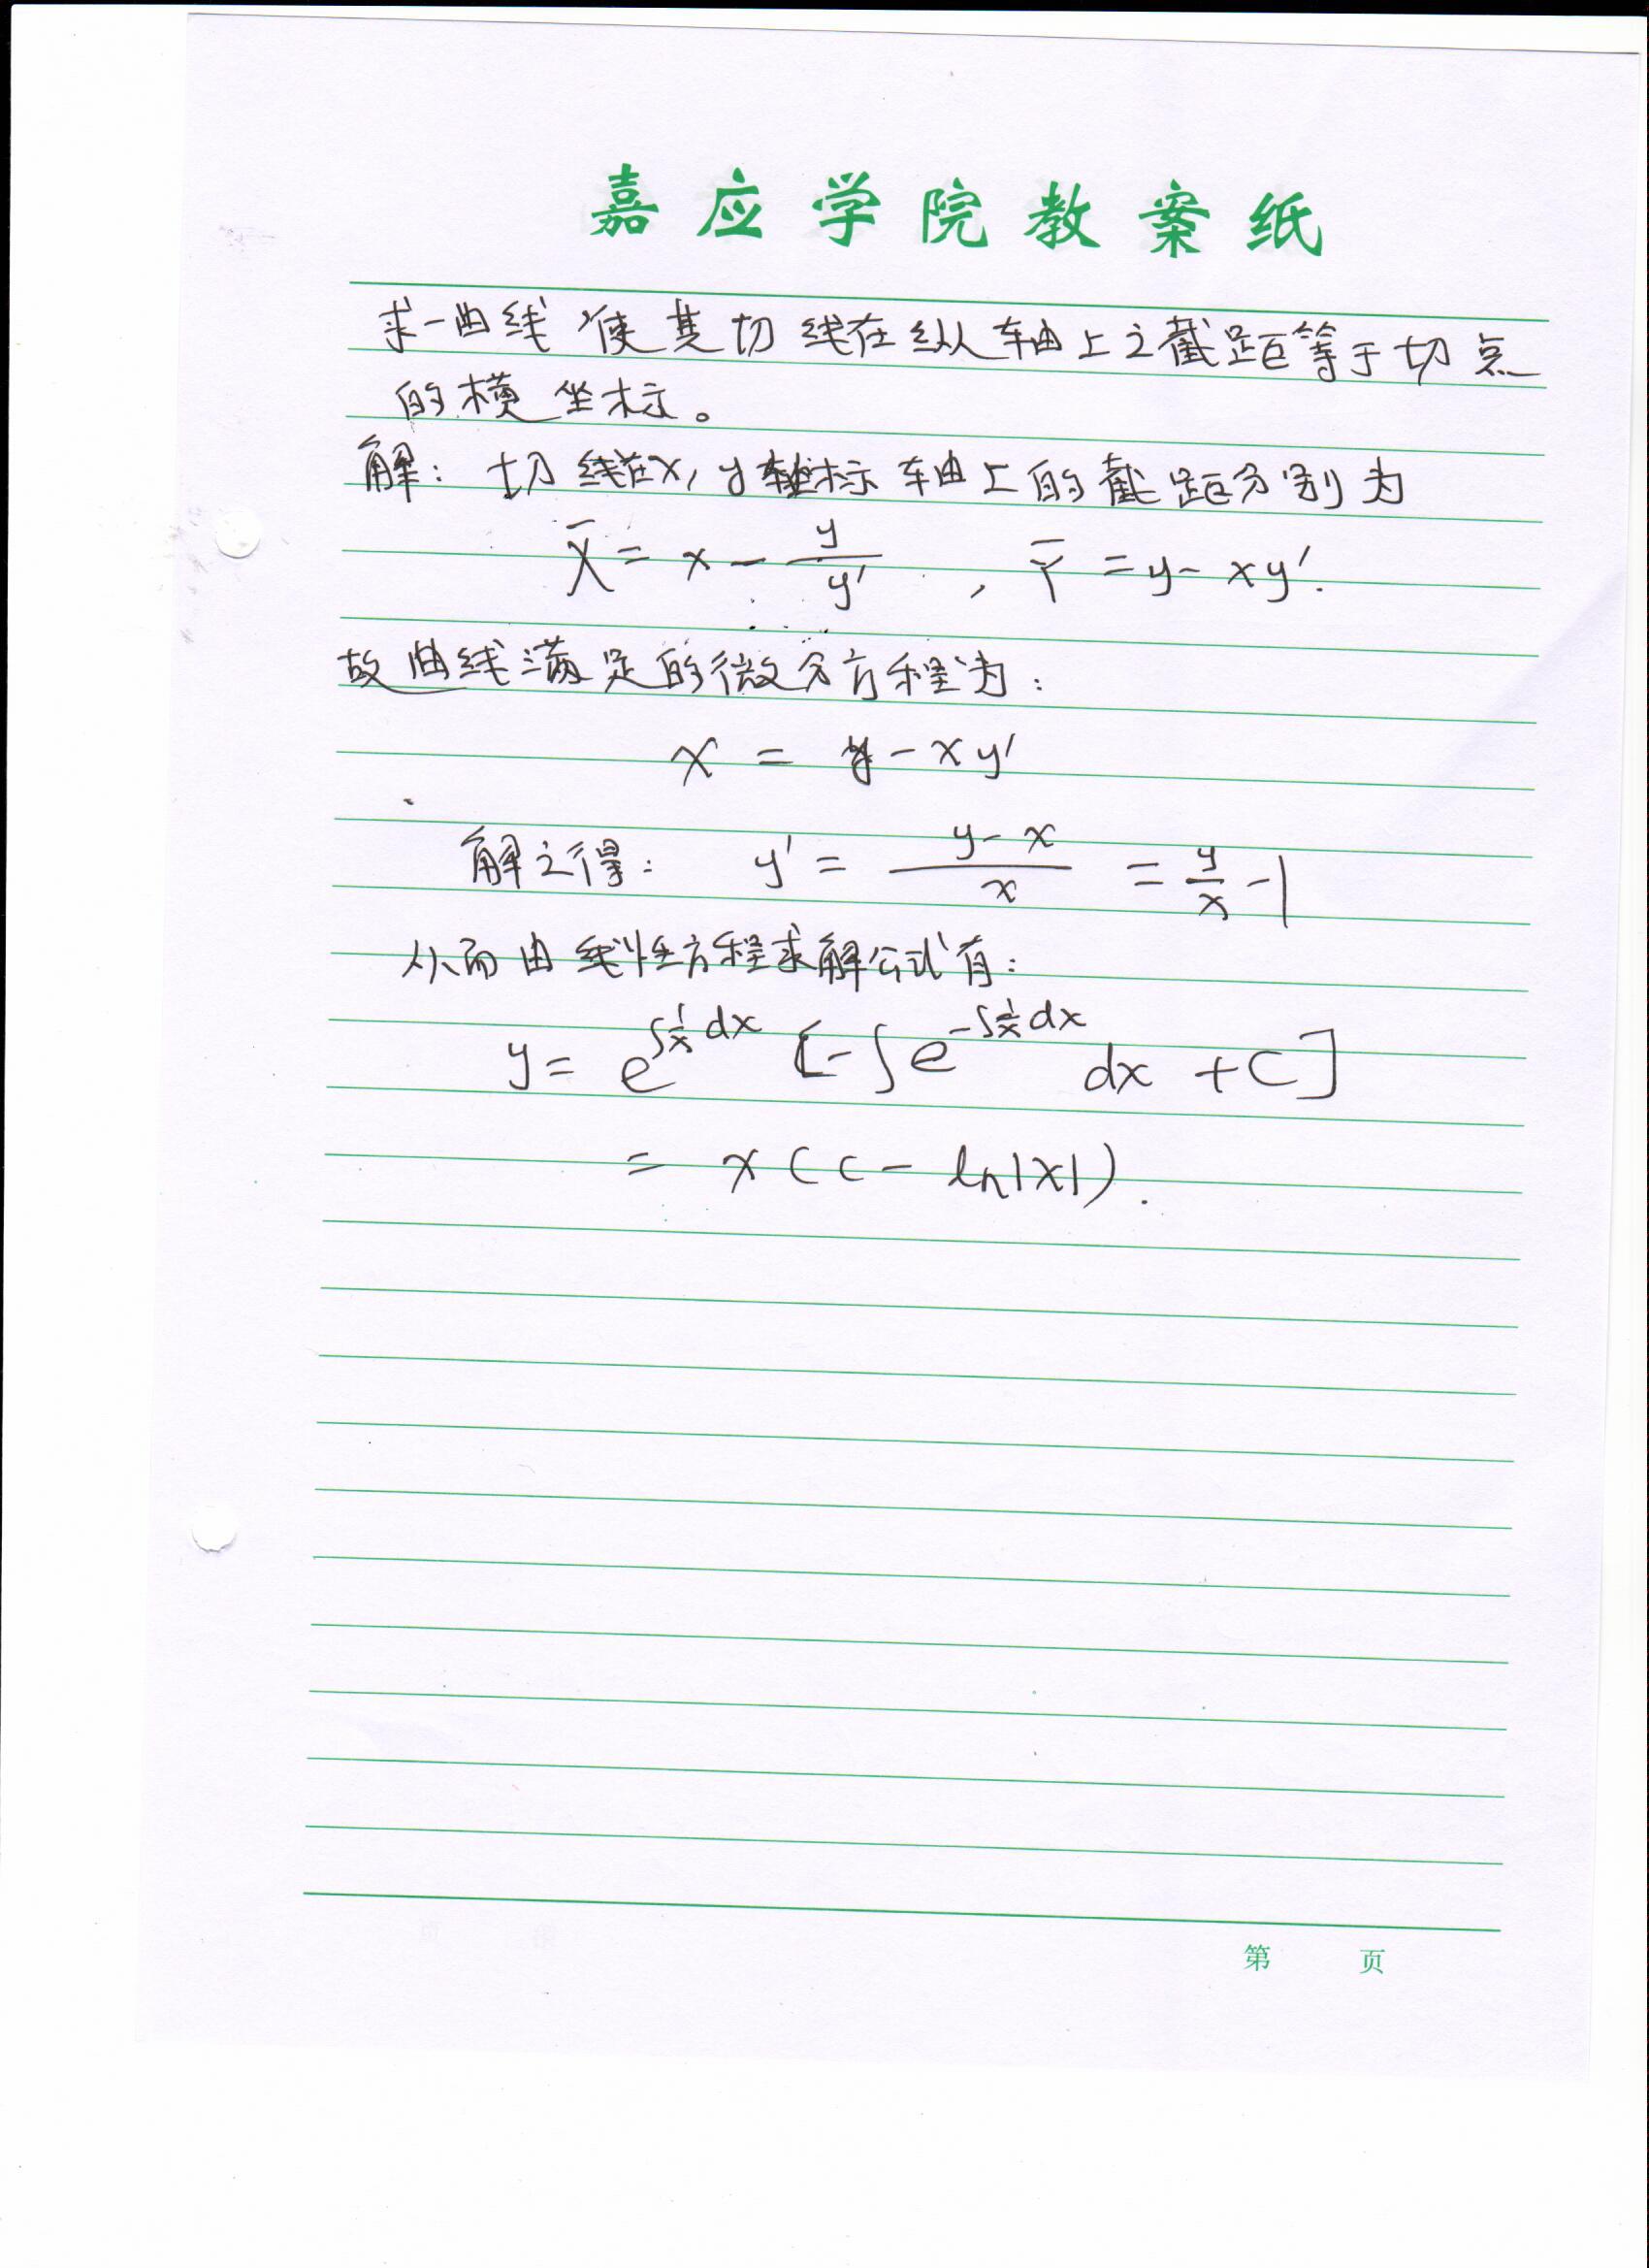 嘉应学院教案纸
求一曲线,使其切线在纵轴上之截距等于切点
的横坐标。
解: 切线在x, y 标轴上的截距分别为
X̄ = x - y/y' , Ȳ = y - xy'.
故曲线满足的微分方程为:
x = y - xy'
解之得: y' = (y-x)/x = y/x - 1
从而由线性方程求解公式有:
y = e^{∫1/x dx} [-∫e^{-∫1/x dx} dx + C]
= x(c - ln|x|).
第 页